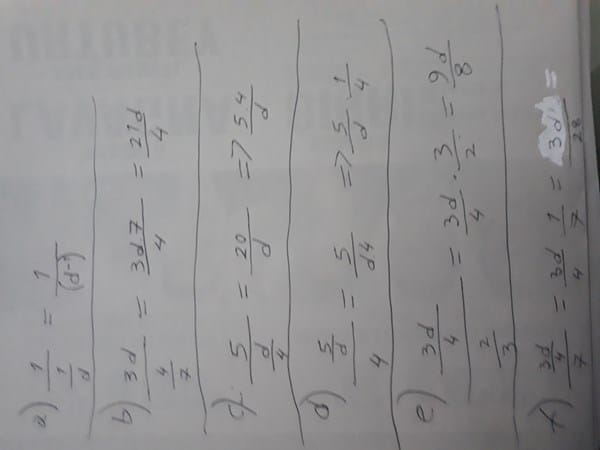 a) 1/(1/d) = 1/(d-1)
b) 3d/(4/7) = 3d7/4 = 21d/4
c) 5/(d/4) = 20/d => 5.4/d
d) (5/d)/4 = 5/d4 => 5/d · 1/4
e) (3d/4)/(2/3) = 3d/4 · 3/2 = 9d/8
f) (3d/4)/7 = 3d/4 1/7 = 3d/28 =